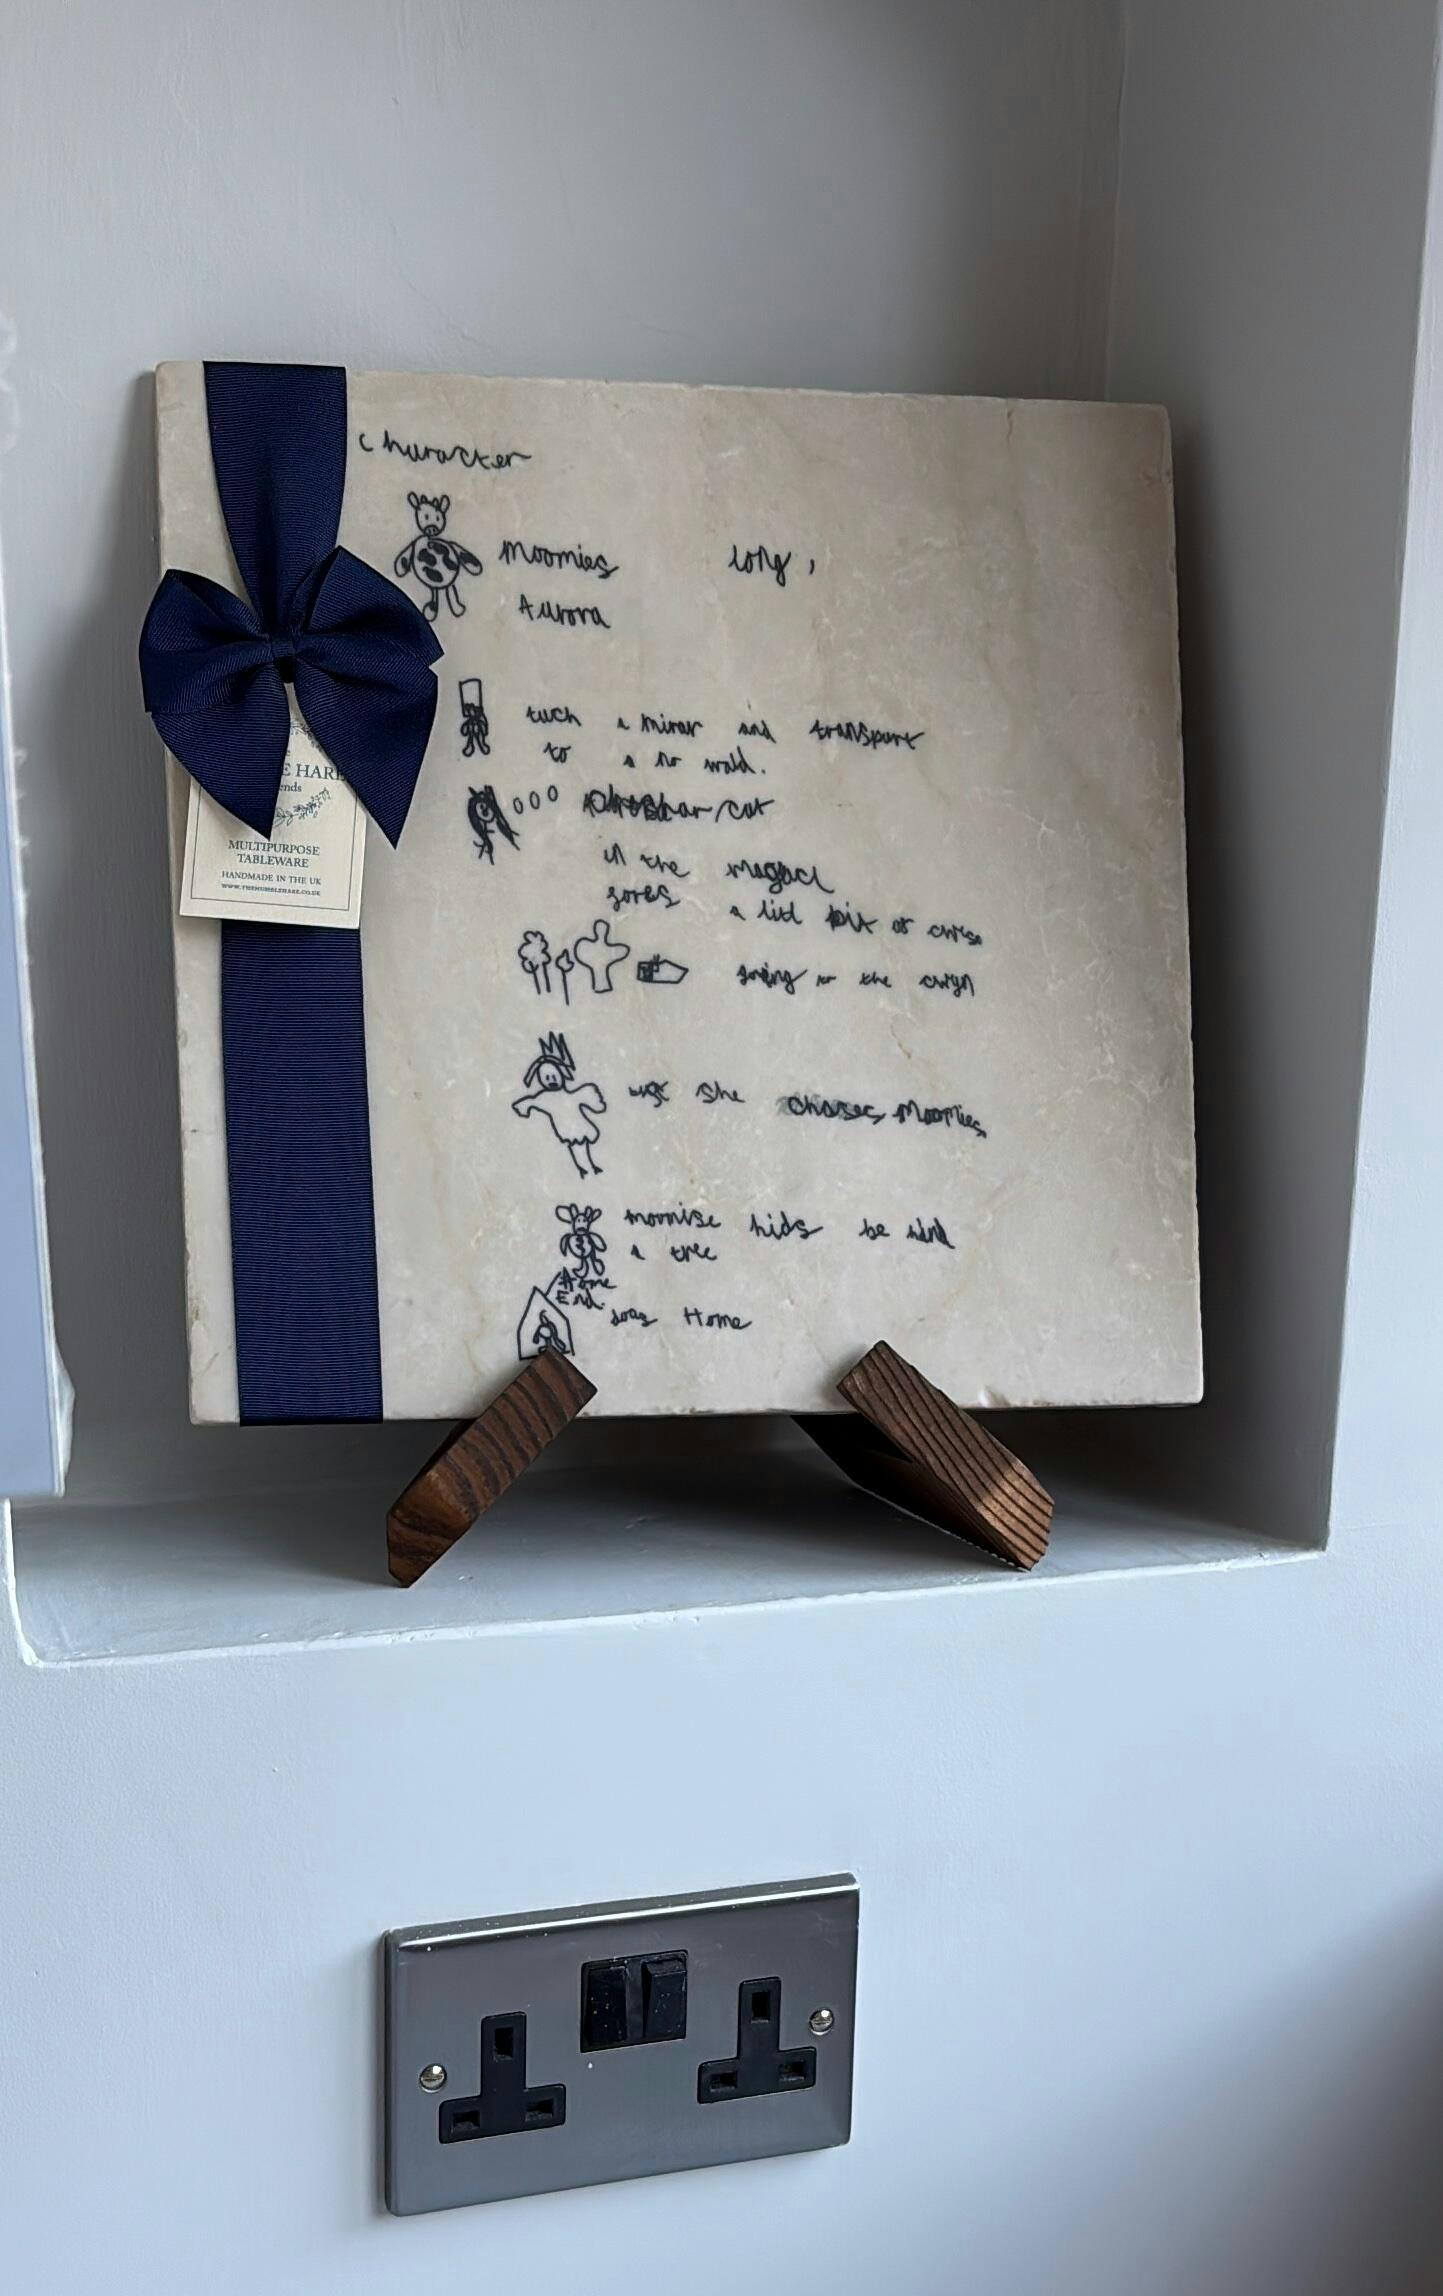 character
Moomies long,
Aurora
tuch a mirar and transpurt
to a no wold.
cat
in the magacl
fores a litl bit of
going to the
she chases Moomies
moomise hids be hind
a tree
Home
End.
goes Home
E HARE
ends
MULTIPURPOSE
TABLEWARE
HANDMADE IN THE UK
WWW.THEHUMBLEHARE.CO.UK